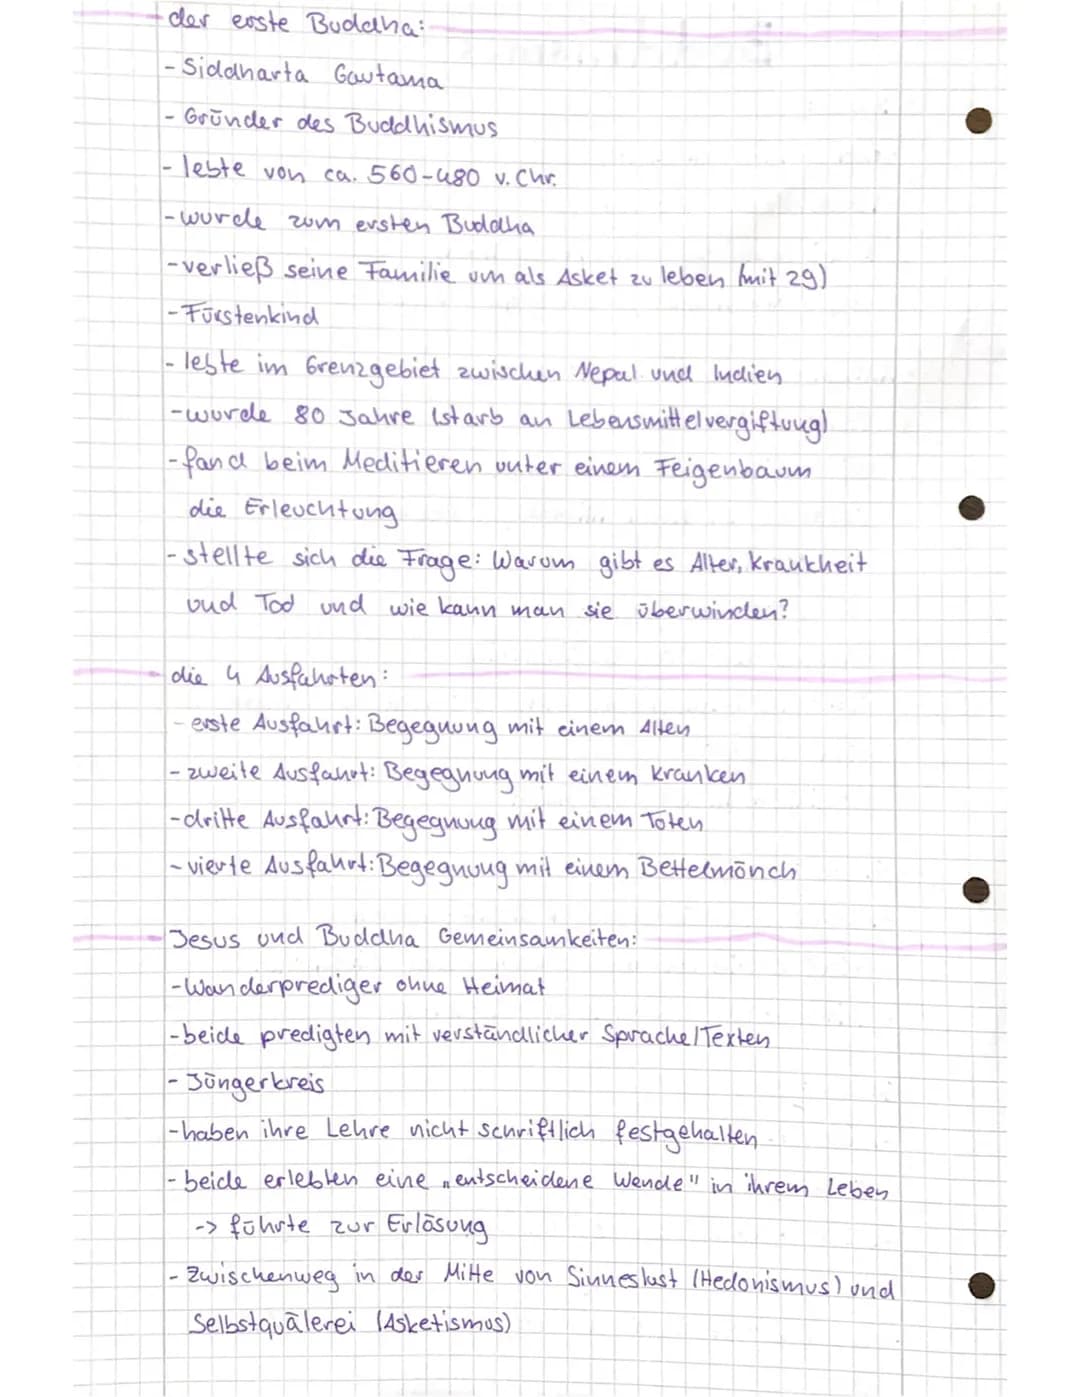 der erste Buddha:
- Siddharta Gautama
- Gründer des Buddhismus
- lebte von ca. 560-480 v. Chr.
- wurde zum ersten Buddha
- verließ seine Familie um als Asket zu leben (mit 29)
- Fürstenkind
- lebte im Grenzgebiet zwischen Nepal und Indien
- wurde 80 Jahre (starb an Lebensmittelvergiftung)
- fand beim Meditieren unter einem Feigenbaum
die Erleuchtung
- stellte sich die Frage: Warum gibt es Alter, Krankheit
und Tod und wie kann man sie überwinden?
die 4 Ausfahrten:
- erste Ausfahrt: Begegnung mit einem Alten
- zweite Ausfahrt: Begegnung mit einem Kranken
- dritte Ausfahrt: Begegnung mit einem Toten
- vierte Ausfahrt: Begegnung mit einem Bettelmönch
Jesus und Buddha Gemeinsamkeiten:
- Wanderprediger ohne Heimat
- beide predigten mit verständlicher Sprache/Texten
- Jüngerkreis
- haben ihre Lehre nicht schriftlich festgehalten
- beide erlebten eine „entscheidene Wende" in ihrem Leben
-> führte zur Erlösung
- Zwischenweg in der Mitte von Sinneslust (Hedonismus) und
Selbstquälerei (Asketismus)